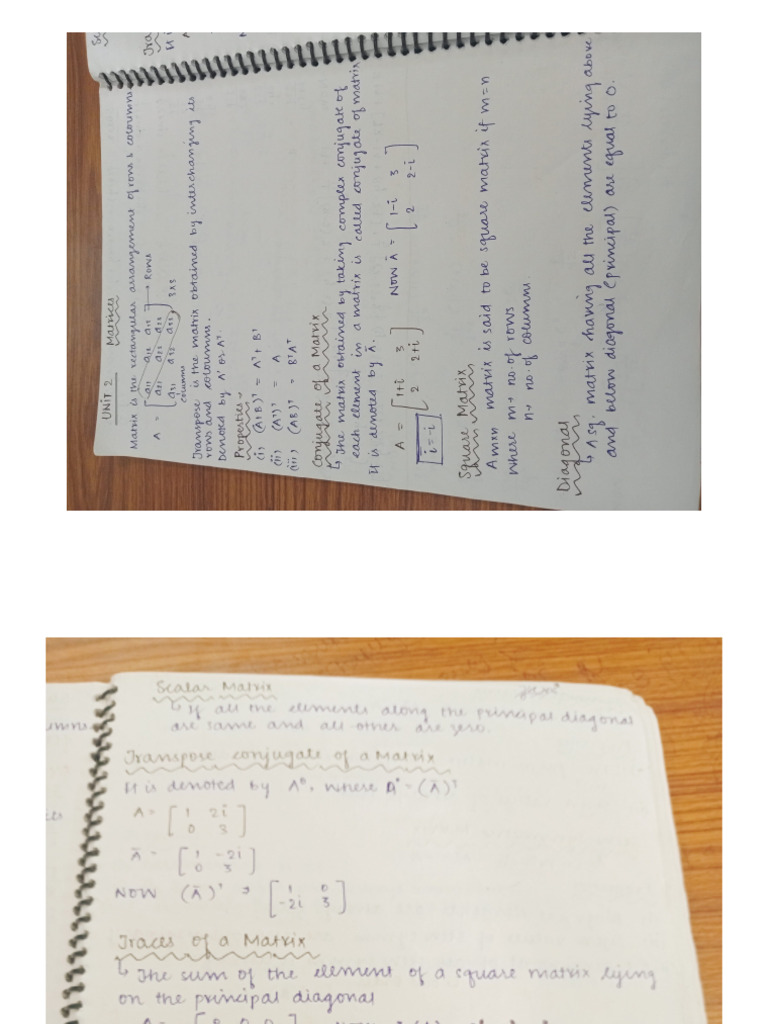 UNIT 2 Matrices
Matrix is the rectangular arrangement of rows & coloumns
A = [ a11 a12 a13 → ROWS
a21 a22 a23
a31 a32 a33 ] 3x3
columns
Transpose is the matrix obtained by interchanging its
rows and coloumns.
Denoted by A' or Aᵀ
Properties-
(i) (A+B)ᵀ = Aᵀ+ Bᵀ
(ii) (Aᵀ)ᵀ = A
(iii) (AB)ᵀ = BᵀAᵀ
Conjugate of a Matrix
↳ The matrix obtained by taking complex conjugate of
each element in a matrix is called conjugate of matrix
It is denoted by Ā.
A = [ 1+i 3 NOW Ā = [ 1-i 3
2 2+i ] 2 2-i ]
i = -i
Square Matrix
A mxn matrix is said to be square matrix if m=n
where m→ no. of rows
n→ no. of columns.
Diagonal
↳ A sq. matrix having all the elements lying above
and below diagonal (principal) are equal to 0.
Scalar Matrix
↳ If all the elements along the principal diagonal
are same and all other are zero.
Transpose conjugate of a Matrix
It is denoted by Aᶿ, where Aᶿ=(Ā)ᵀ
A= [ 1 2i
0 3 ]
Ā = [ 1 -2i
0 3 ]
NOW (Ā)ᵀ = [ 1 0
-2i 3 ]
Traces of a Matrix
↳ The sum of the element of a square matrix lying
on the principal diagonal